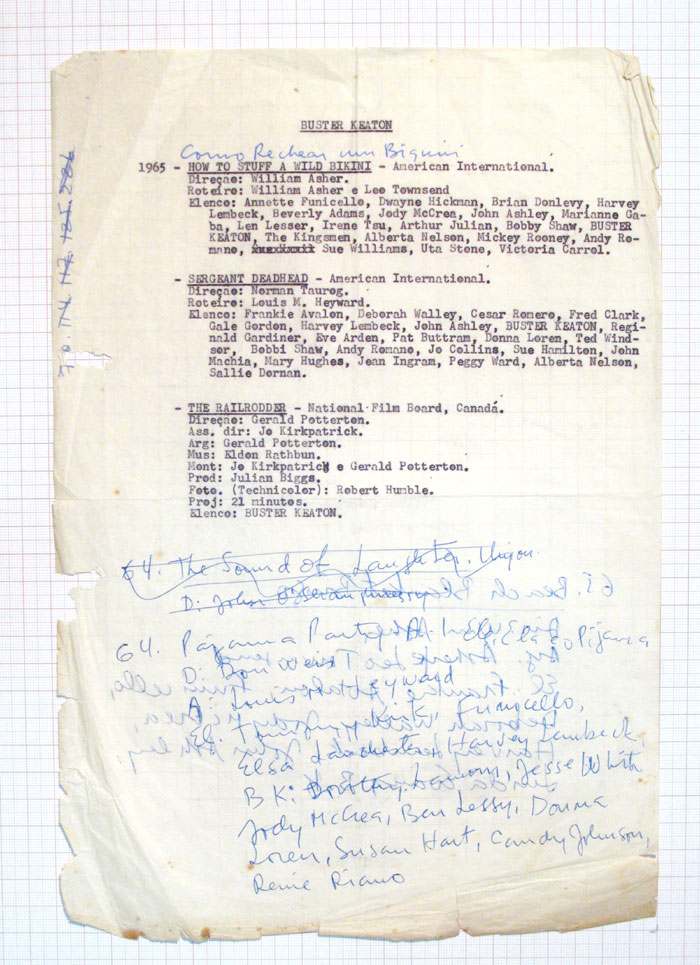 BUSTER KEATON
Como Rechear um Biquini
1965 - HOW TO STUFF A WILD BIKINI - American International.
Direçao: William Asher.
Roteiro: William Asher e Leo Townsend
Elenco: Annette Funicello, Dwayne Hickman, Brian Donlevy, Harvey
Lembeck, Beverly Adams, Jody McCrea, John Ashley, Marianne Ga-
ba, Len Lesser, Irene Tsu, Arthur Julian, Bobby Shaw, BUSTER
KEATON, The Kingsmen, Alberta Nelson, Mickey Rooney, Andy Ro-
mano, Sue Williams, Uta Stone, Victoria Carrol.
- SERGEANT DEADHEAD - American International.
Direçao: Norman Taurog.
Roteiro: Louis M. Heyward.
Elenco: Frankie Avalon, Deborah Walley, Cesar Romero, Fred Clark,
Gale Gordon, Harvey Lembeck, John Ashley, BUSTER KEATON, Regi-
nald Gardiner, Eve Arden, Pat Buttram, Donna Loren, Ted Wind-
sor, Bobbi Shaw, Andy Romano, Jo Collins, Sue Hamilton, John
Machia, Mary Hughes, Jean Ingram, Peggy Ward, Alberta Nelson,
Sallie Dornan.
- THE RAILRODDER - National Film Board, Canadá.
Direçao: Gerald Potterton.
Ass. dir: Jo Kirkpatrick.
Arg: Gerald Potterton.
Mus: Eldon Rathbun.
Mont: Jo Kirkpatrick e Gerald Potterton.
Prod: Julian Biggs.
Foto. (Technicolor): Robert Humble.
Proj: 21 minutos.
Elenco: BUSTER KEATON.
64. The Sound of Laughter. Union.
D: John O'Shaughnessy
65. Beach
64. Pajama Party Ela e o Pijama
D. Don Weis
A. Louis Heyward
El. Funicello,
Elsa Lanchester, Harvey Lembeck,
BK. Dorothy Lamour, Jesse White
Jody McCrea, Ben Lessy, Donna
Loren, Susan Hart, Candy Johnson,
Renie Riano